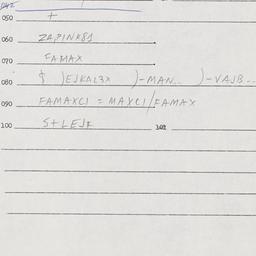 050 +
060 ZAPINKSJ
070 FAMAX
080 $ )EJKAL3X )-MAN... )-VAJB...
090 FAMAXCI = MAXCI/FAMAX
100 S+LEJF 101